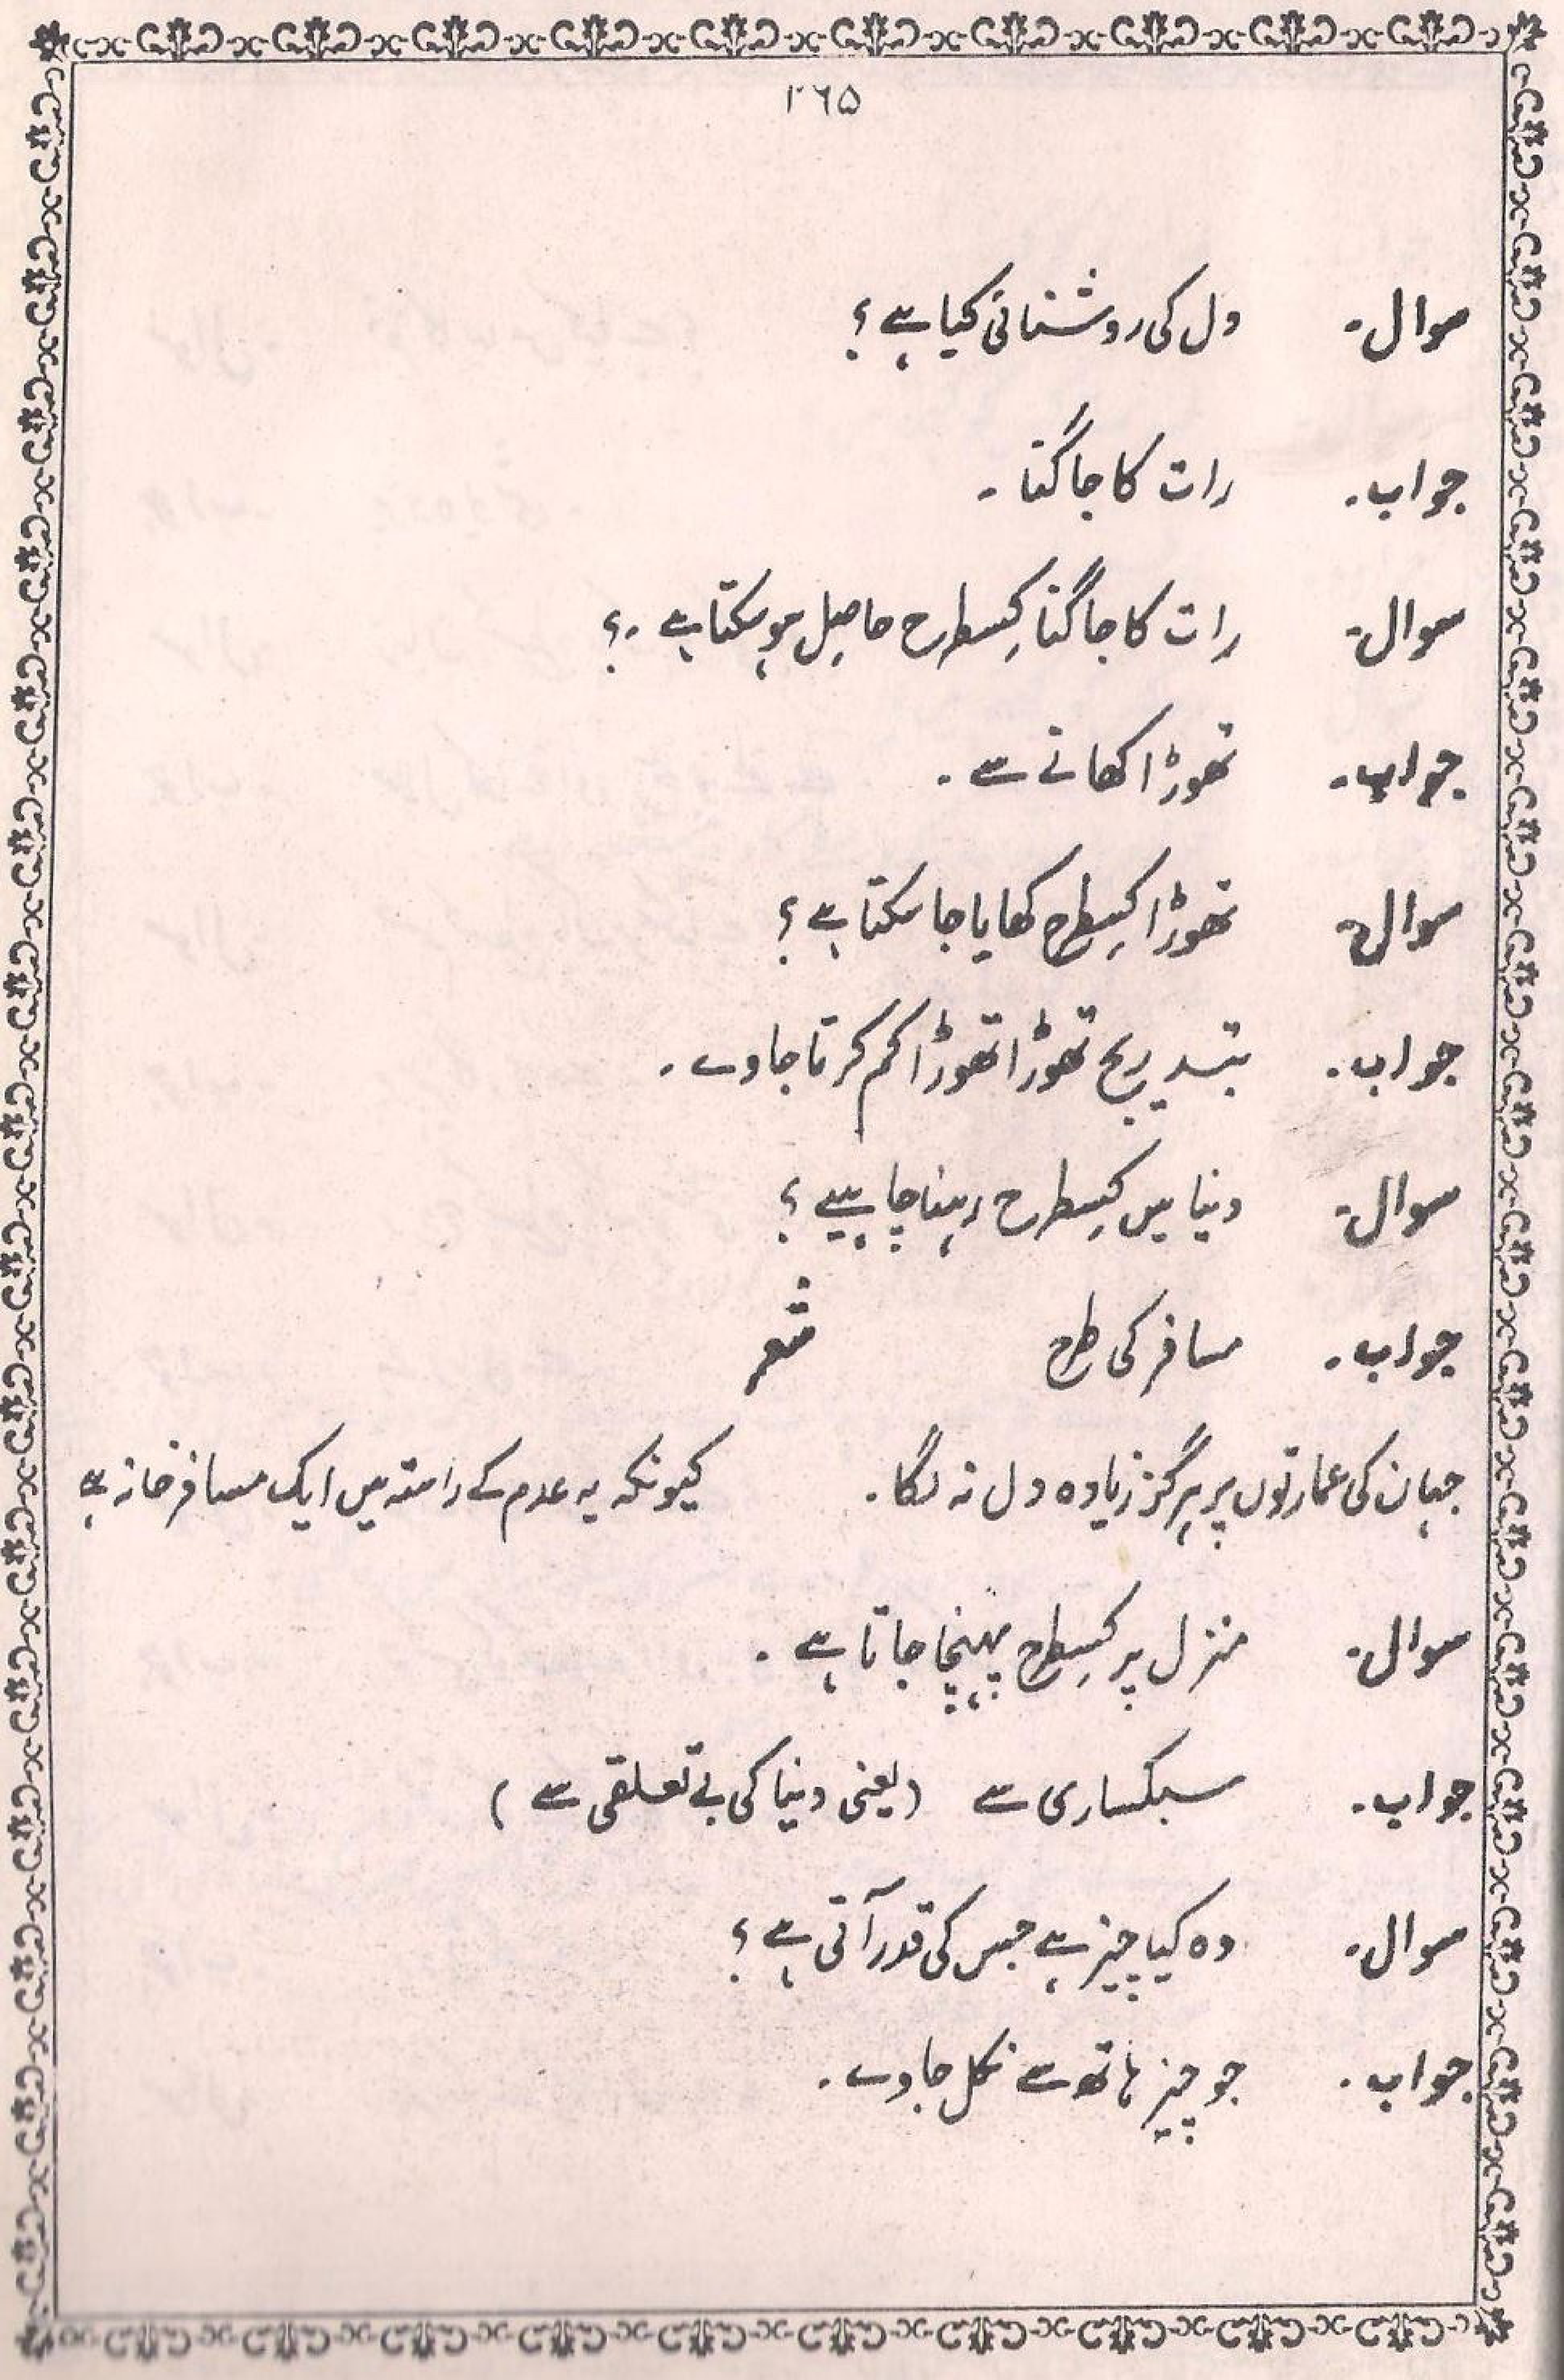 ۲۶۵
سوال۔ دل کی روشنائی کیا ہے؟
جواب۔ رات کا جاگنا۔
سوال۔ رات کا جاگنا کِسطرح حاصِل ہو سکتا ہے۔؟
جواب۔ تھوڑا کھانے سے۔
سوال۔ تھوڑا کِسطرح کھایا جا سکتا ہے؟
جواب۔ بتدریج تھوڑا تھوڑا کم کرتا جاوے۔
سوال۔ دنیا میں کِسطرح رہنا چاہیے؟
جواب۔ مسافر کی طرح شعر
جہان کی عمارتوں پر ہرگز زیادہ دل نہ لگا۔ کیونکہ یہ عدم کے راستہ میں ایک مسافر خانہ ہے
سوال۔ منزل پر کِسطرح پہنچا جاتا ہے۔
جواب۔ سبکساری سے (یعنی دنیا کی بے تعلقی سے)
سوال۔ وہ کیا چیز ہے جس کی قدر آتی ہے؟
جواب۔ جو چیز ہاتھ سے نکل جاوے۔